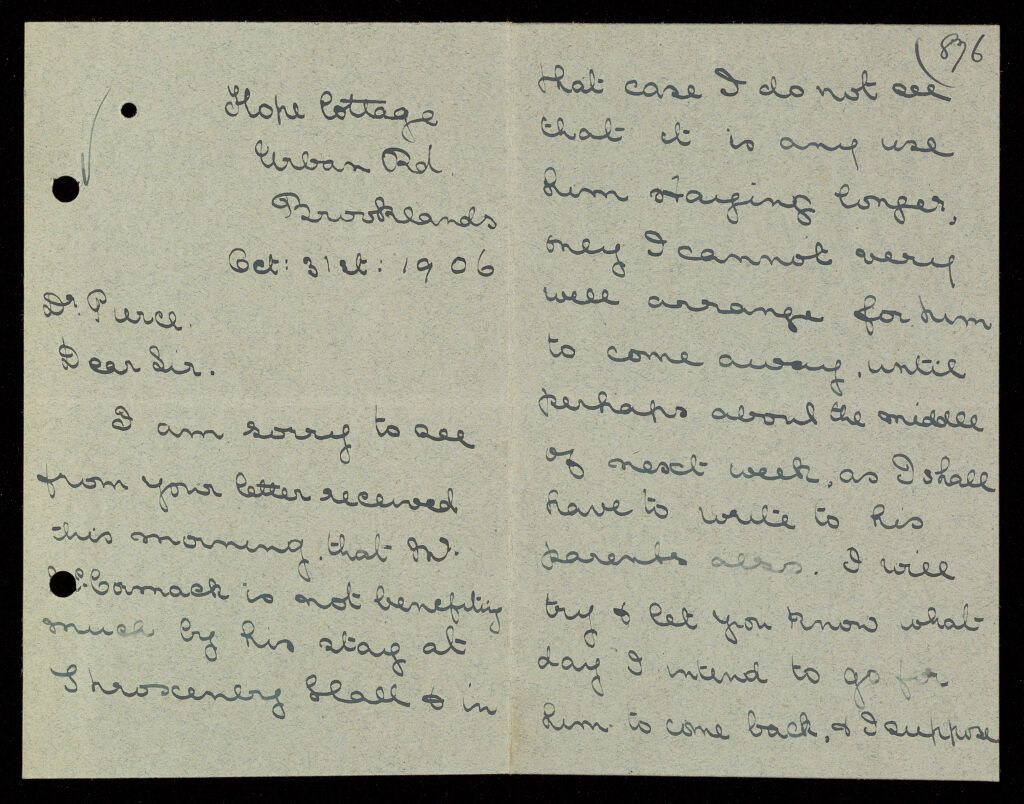 Hope Cottage
Urban Rd.
Brooklands
Oct: 31st: 1906
Dr. Pierce.
Dear Sir.
I am sorry to see
from your letter received
this morning, that Mr.
McCormack is not benefiting
much by his stay at
Throxenby Hall & in
(876
that case I do not see
that it is any use
him staying longer,
only I cannot very
well arrange for him
to come away, until
perhaps about the middle
of next week, as I shall
have to write to his
parents also. I will
try & let you know what
day I intend to go for
him to come back, & I suppose